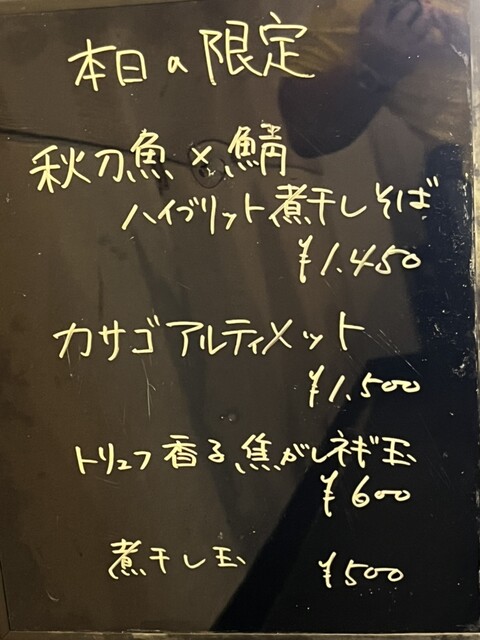 本日の限定
秋刀魚×鯖
ハイブリット煮干しそば
¥1.450
カサゴアルティメット
¥1.500
トリュフ香る焦がしネギ玉
¥600
煮干し玉 ¥500